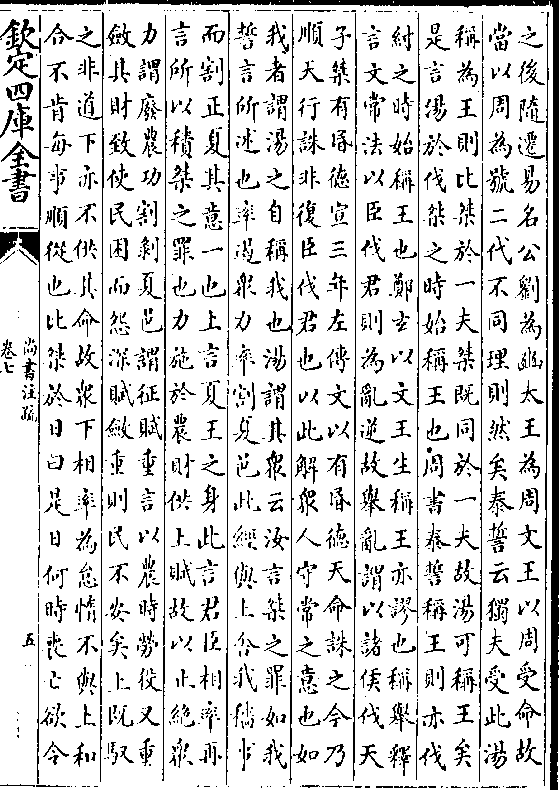 之後隨遷易名公劉為豳太王為周文王以周受命故
當以周為號二代不同理則然矣泰誓云獨夫受此湯
稱為王則比桀於一夫桀既同於一夫故湯可稱王矣
是言湯於伐桀之時始稱王也周書泰誓稱王則亦伐
紂之時始稱王也鄭玄以文王生稱王亦謬也稱舉釋
言文常法以臣伐君則為亂逆故舉亂謂以諸侯伐天
子桀有昏德宣三年左傳文以有昏德天命誅之今乃
順天行誅非復臣伐君也以此解衆人守常之意也如
我者謂湯之自稱我也湯謂其衆云汝言桀之罪如我
誓言所述也率遏衆力率割夏邑此經與上舍我穡事
而割正夏其意一也上言夏王之身此言君臣相率再
言所以積桀之罪也力施於農財供上賦故以止絕衆
力謂廢農功割剝夏邑謂征賦重言以農時勞役又重
斂其財致使民困而怨深賦斂重則民不安矣上既馭
之非道下亦不供其命故衆下相率為怠惰不與上和
合不肯每事順從也比桀於日曰是日何時喪亡欲令
欽定四庫全書
尚書注疏
卷七
五